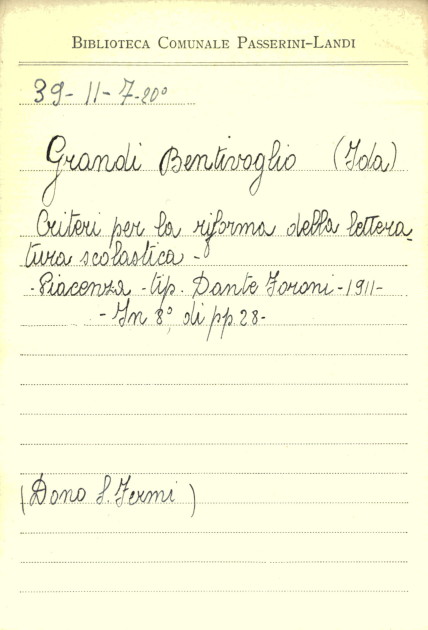 BIBLIOTECA COMUNALE PASSERINI-LANDI
39-11-7-20°
Grandi Bentivoglio (Ida)
Criteri per la riforma della lettera
tura scolastica -
- Piacenza - tip. Dante Foroni - 1911 -
- In 8°, di pp. 28 -
(Dono S. Fermi)